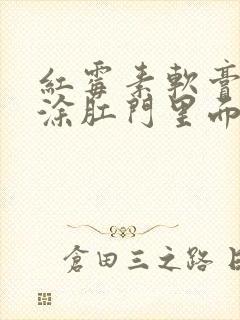 紅霉素軟膏
涂肛門里而
倉田三之路